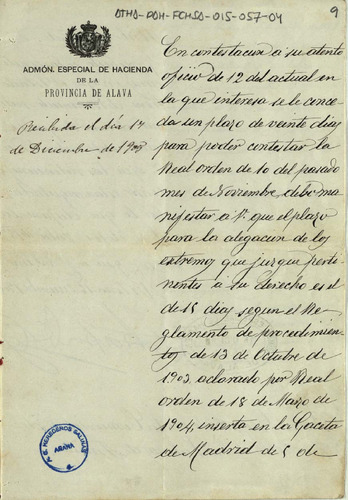 ATHA-DAH-FCHSA-015-057-04
9
ADMÓN. ESPECIAL DE HACIENDA
DE LA
PROVINCIA DE ALAVA
Recibida el día 14
de Diciembre de 1908
En contestación a su atento
oficio de 12 del actual en
la que interesa se le conce
da un plazo de veinte dias
para poder contestar la
Real orden de 10 del pasado
mes de Noviembre, debo ma
nifestar a V. que el plazo
para la alegación de los
extremos que juzgue perti
nentes a su derecho es el
de 15 dias segun el Re
glamento de procedimien
tos de 13 de Octubre de
1903, aclarado por Real
orden de 18 de Marzo de
1904, inserta en la Gaceta
de Madrid de 5 de
HEREDEROS SALINAS
ARAÑA